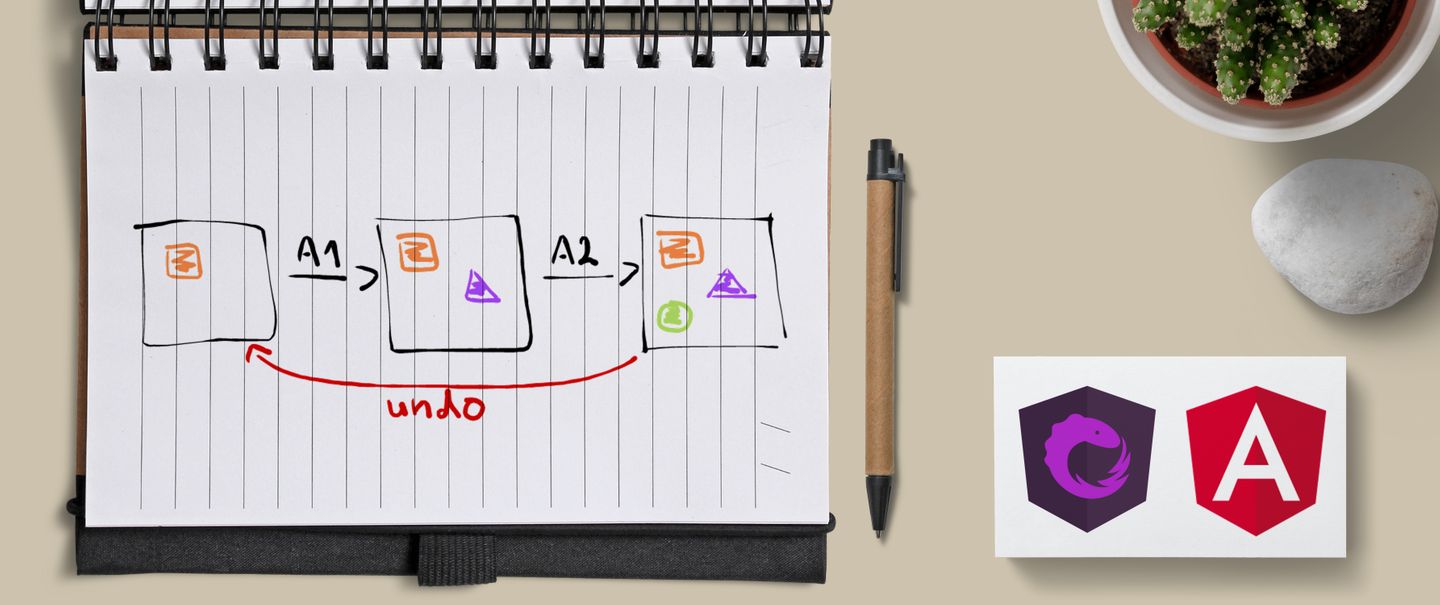 A1
A2
undo
A